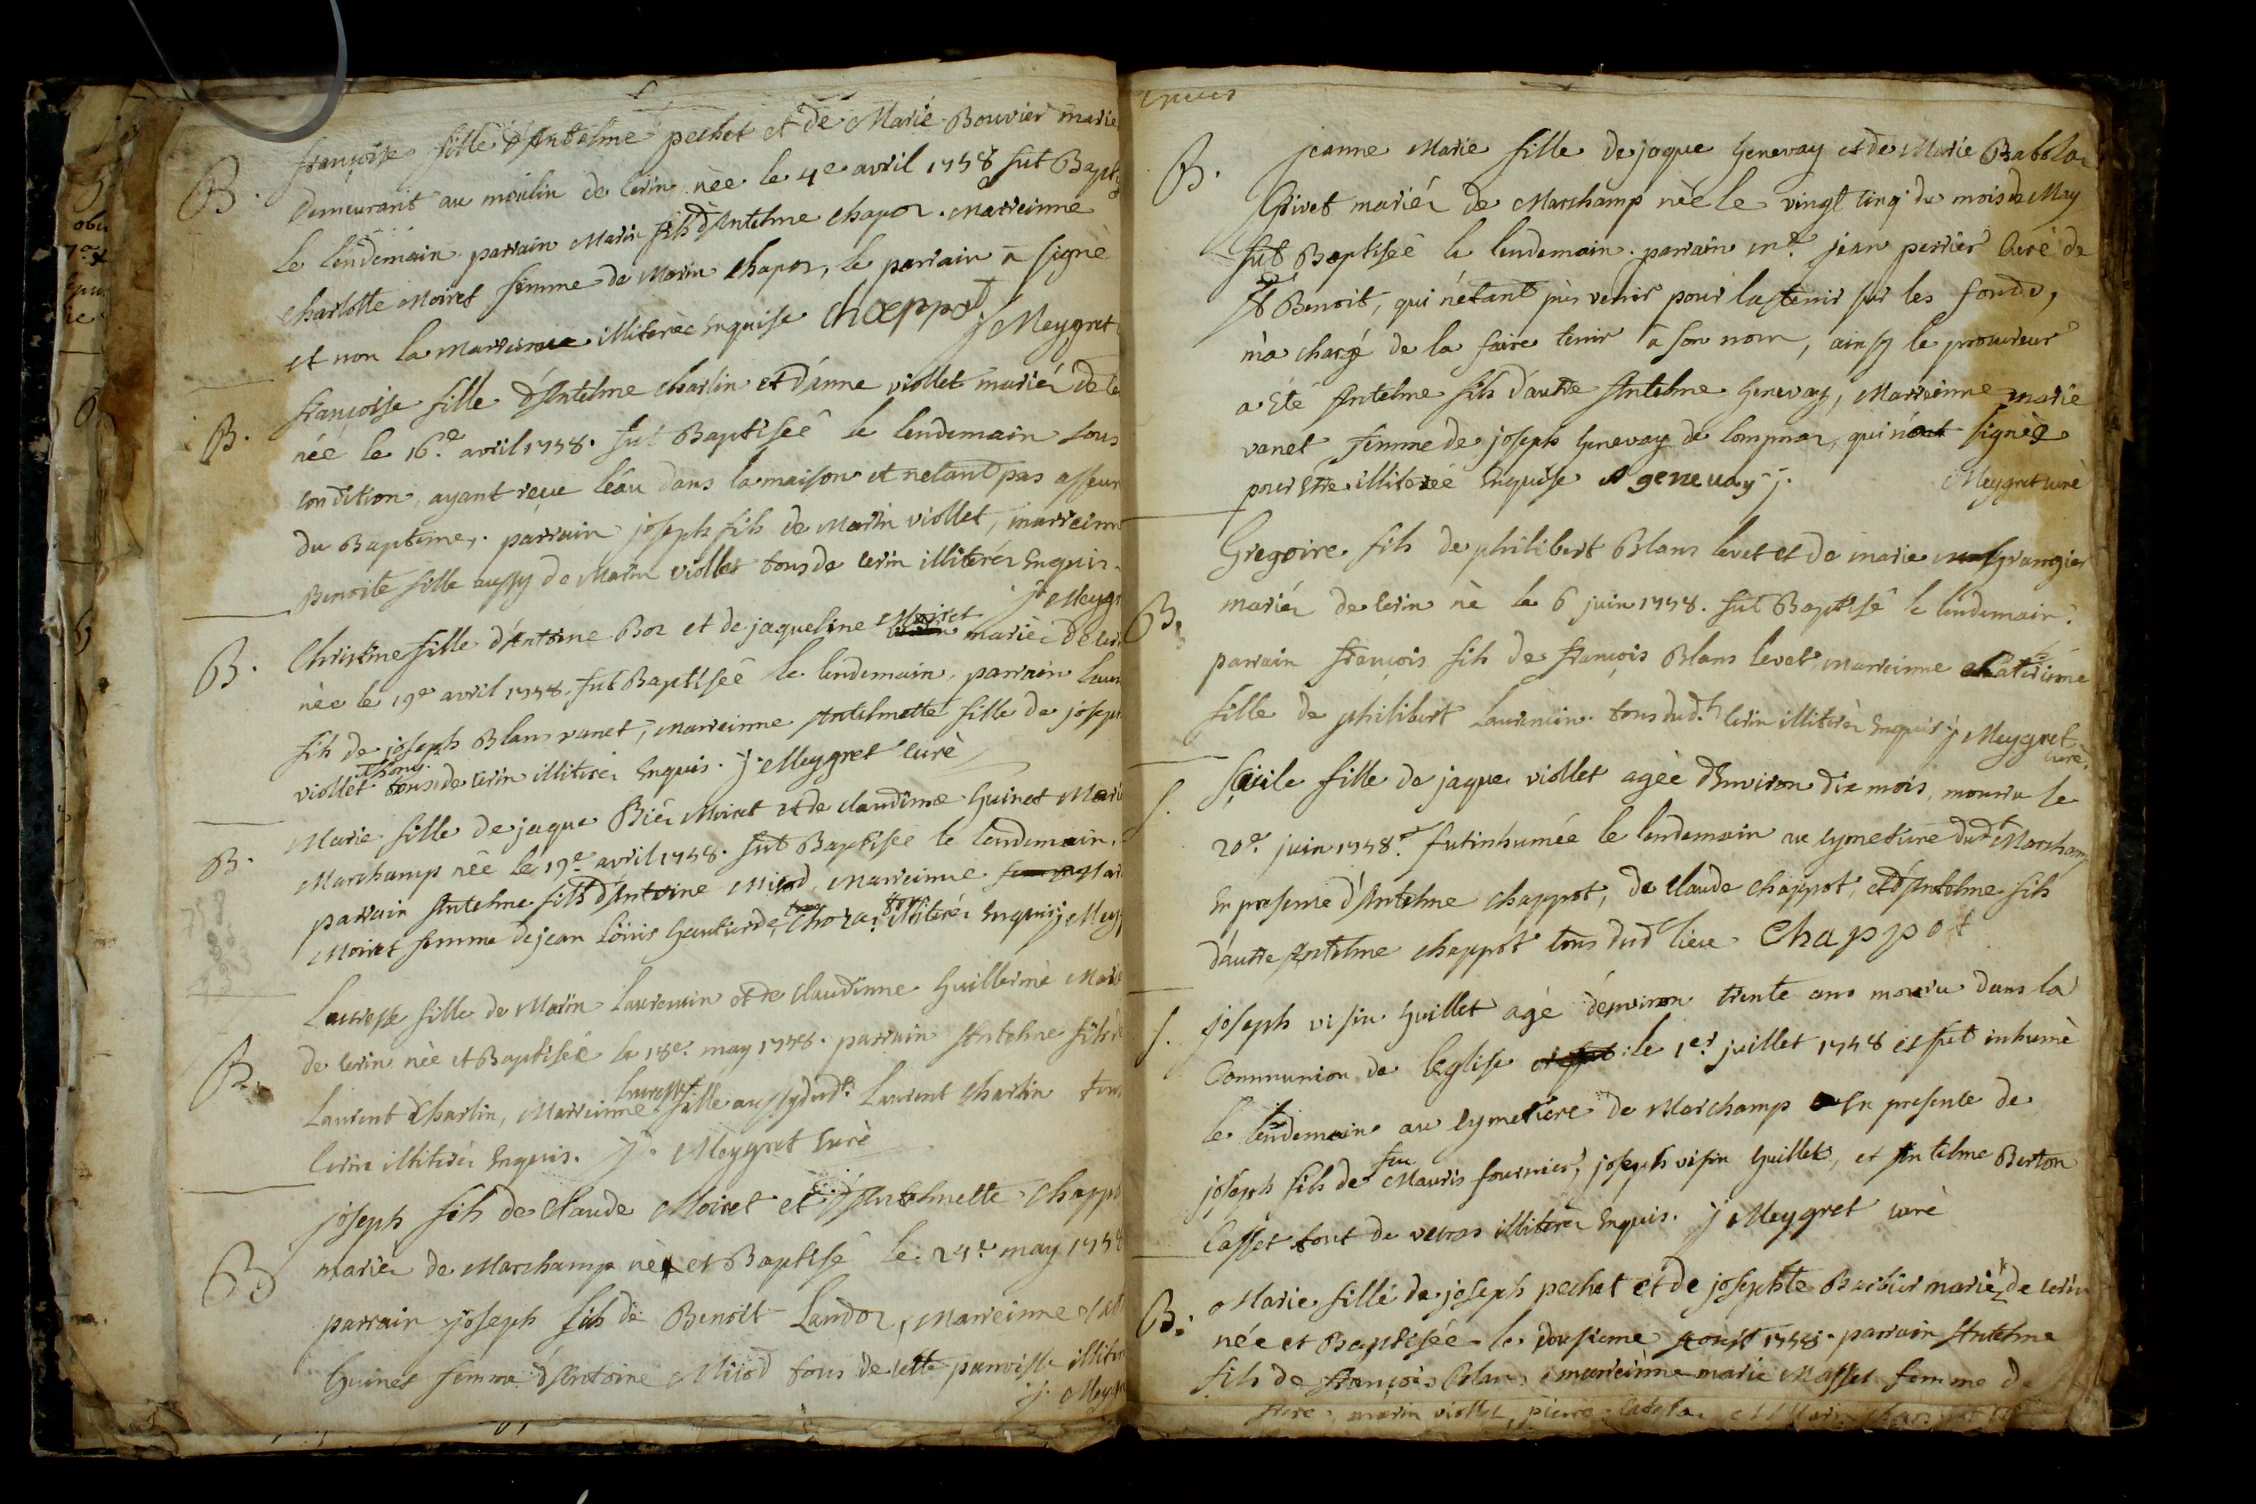 B. françoise fille d'Antelme pechet et de Marie Bouvier marie
demeurant au moulin de Cerin nèe le 4e avril 1758 fut Bapt
le lendemain parrain Marin fils d'Antelme chapoz. Marreinne
charlotte Moiret femme de Marin Chapoz, le parrain a signè
et non la marreinne illiterèe enquise Chappot j Meygret
B. françoise fille d'Antelme charlin et d'anne viollet mariéz de Ce
née le 16e avril 1758. fut Baptiseè le lendemain sous
condition, ayant reçue l'eau dans la maison et n'etant pas asseur
du Baptême,. parrain joseph fils de Marin viollet, marreinne
Benoite fille aussy de Marin viollet tous de Cerin illiteréz enquis.
j. Meygr
B. Christine fille d'Antoine Boz et de jaqueline Moiret marièz de Ceri
nèe le 19e avril 1758. fut Baptiseè le lendemain, parrain Laur
fils de joseph Blanc vanet, marreinne Antelmette fille de joseph
viollet Thony tous de Cerin illiteréz enquis. j. Meygret curè
B. Marie fille de jaque Biéz Moiret et de claudine Guinet Marié
Marchamp nèe le 19e avril 1758. fut Baptisee le lendemain.
parrain Antelme fils d'Antoine Miiod, Marreinne Mari
Moiret femme de jean Loüis Gautier de Choza. tous illiteréz enquis j Meyg
B. Lauresse fille de Marin Laurencin et de Claudinne Guillermè Marié
de Cerin née et Baptiseè le 18e may 1758. parrain Antelme fils de
Laurent Charlin, Marreinne Lauresse fille aussy dudt Laurent Charlin tous
Cerin illiteréz enquis. j. Meygret curè
B joseph fils de Claude Moiret et d'Antelmette Chapp
mariéz de Marchamp né et Baptisé le 24e may 1758
parrain joseph fils de Benoit Landoz, Marreinne
Guinet femme d'Antoine Miiod tous de cette parroisse illiter
j. Meyg
B. jeanne Marie fille de jaque Genevay et de Marie Babolaz
Grivet mariéz de Marchamp nèe le vingt cinq du mois de May
fut Baptiseè le lendemain. parrain mr. jean perrier Curé de
St Benoit, qui n'étant pûs venir pour la tenir sur les fonds,
m'a chargé de la faire tenir a son nom, ainsy le procureur
a èté Antelme fils d'autre Antelme Genevay, Marreinne marie
vanet femme de joseph Genevay de Lompnaz, qui n'a signèe
pour être illiterée enquise A genevay j. Meygret curè
B. Gregoire fils de philibert Blanc levet et de marie Grangier
mariéz de Cerin nè le 6 juin 1758. fut Baptisé le lendemain.
parrain françois fils de françois Blanc levet marreinne Catherinne
fille de philibert Laurencin. tous dudt Cerin illiteréz enquis j Meygret
curè.
S. Çècile fille de jaque viollet agèe d'Environ dix mois, mourru le
20e. juin 1758. fut inhumée le lendemain au cymetiere dudt Marchamp
En presence d'Antelme chappot, de Claude chappot, et d'Antelme fils
d'autre Antelme chappot tous dudt lieu Chappot
S. joseph visin Guillet agé d'environ trente ans mouru dans la
Communion de l'Eglise le 1er juillet 1758 et fut inhumè
le lendemain au cymetiere de Marchamp En presence de
joseph fils de feu Mauris fournier, joseph visin Guillet, et Antelme Berton
Casset tout de veras illiteréz enquis. j Meygret curè
B. Marie fille de joseph pechet et de josephte Barbier marièz de Cerin
née et Baptisée le dousieme Aoust 1758. parrain Antelme
fils de françois Blanc marreinne marie Masset femme de
marin viollet, pierre